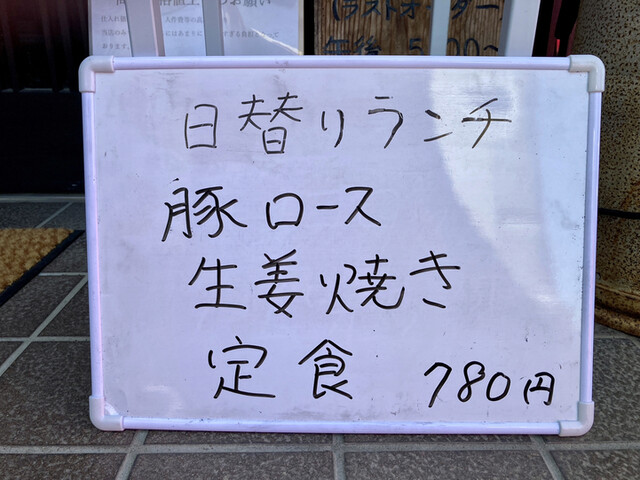 (ラストオーダー
午後 5:00~
日替りランチ
豚ロース
生姜焼き
定食 780円